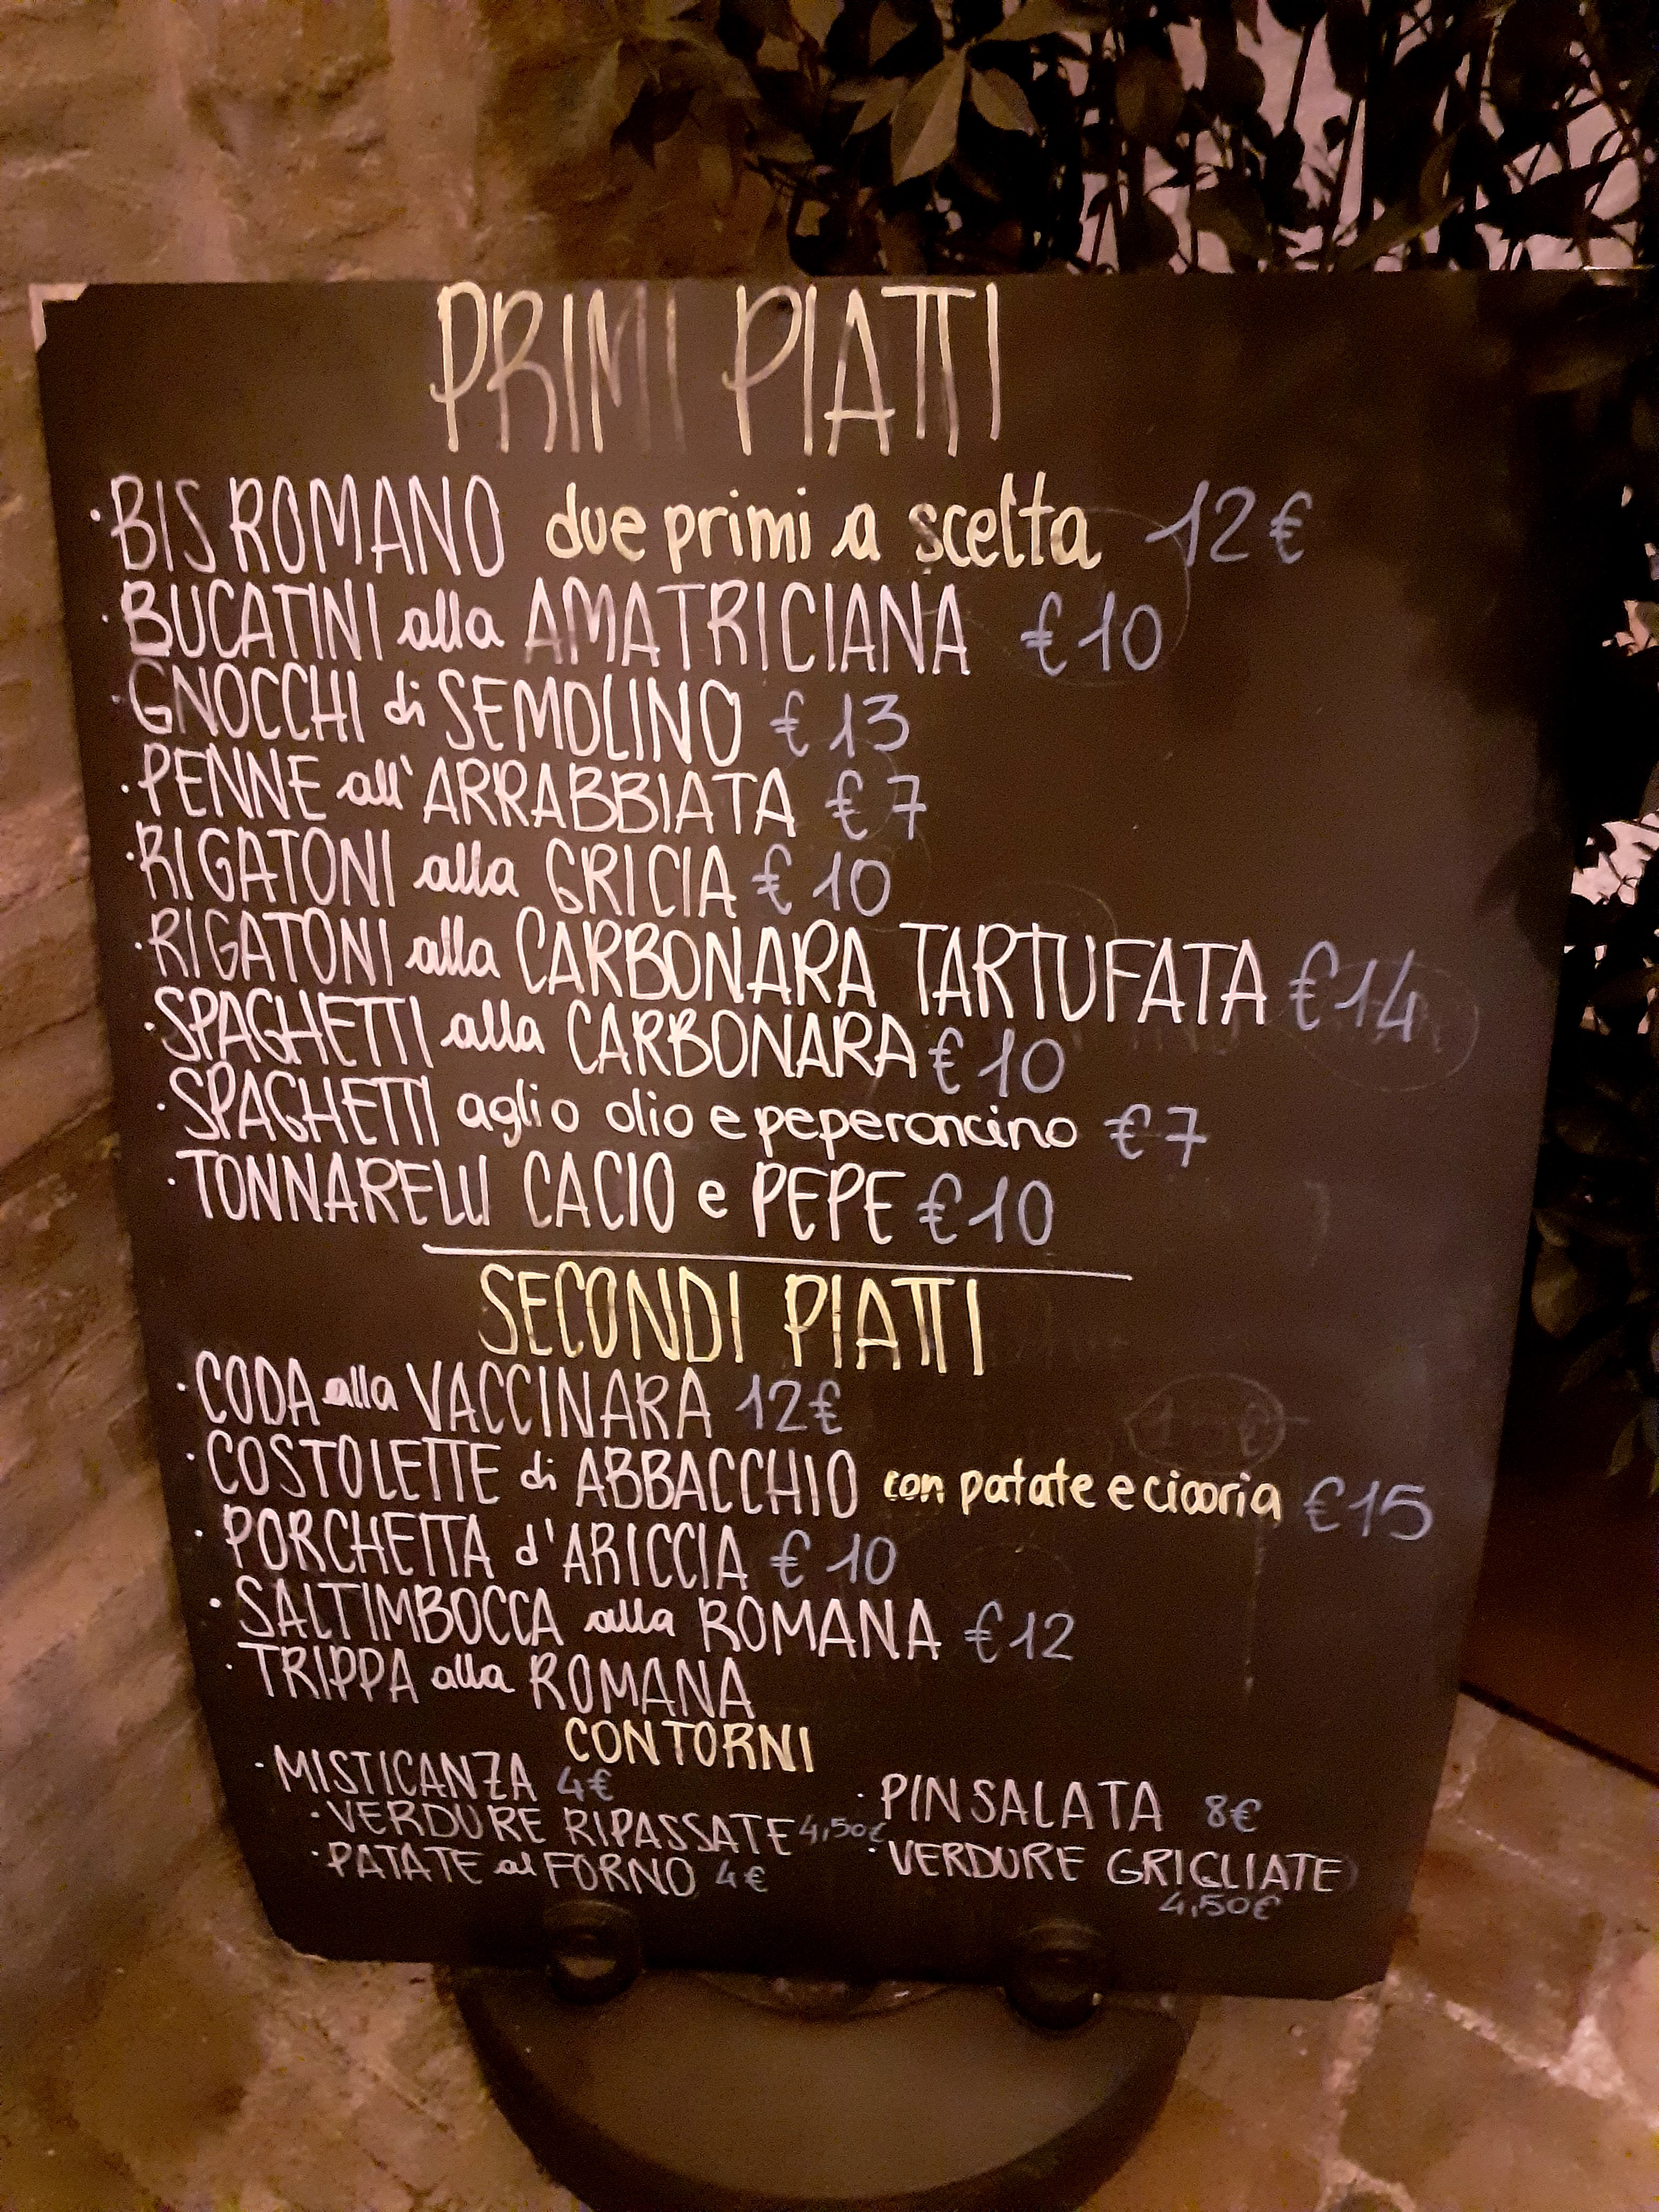 PRIMI PIATTI
· BIS ROMANO due primi a scelta 12€
· BUCATINI alla AMATRICIANA €10
· GNOCCHI di SEMOLINO €13
· PENNE all'ARRABBIATA €7
· RIGATONI alla GRICIA €10
· RIGATONI alla CARBONARA TARTUFATA €14
· SPAGHETTI alla CARBONARA €10
· SPAGHETTI aglio olio e peperoncino €7
· TONNARELLI CACIO e PEPE €10
SECONDI PIATTI
· CODA alla VACCINARA 12€
· COSTOLETTE di ABBACCHIO con patate e cicoria €15
· PORCHETTA d'ARICCIA €10
· SALTIMBOCCA alla ROMANA €12
· TRIPPA alla ROMANA
CONTORNI
· MISTICANZA 4€
· VERDURE RIPASSATE 4,50€
· PATATE al FORNO 4€
· PINSALATA 8€
· VERDURE GRIGLIATE
4,50€